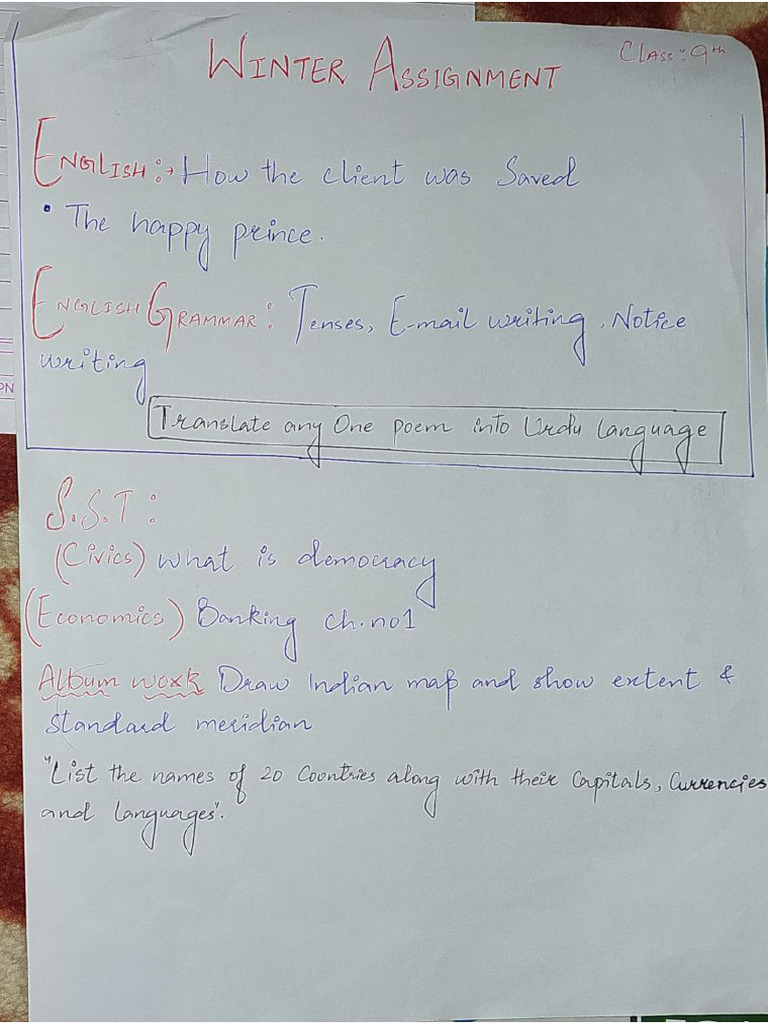 WINTER ASSIGNMENT
CLASS: 9th
ENGLISH:→ How the client was Saved
• The happy prince.
ENGLISH GRAMMAR: Tenses, E-mail writing, Notice
writing
Translate any One poem into Urdu language
S.S.T:
(Civics) what is democracy
(Economics) Banking ch.no1
Album work Draw Indian map and show extent &
standard meridian
"List the names of 20 Countries along with their Capitals, Currencies
and languages".
PN